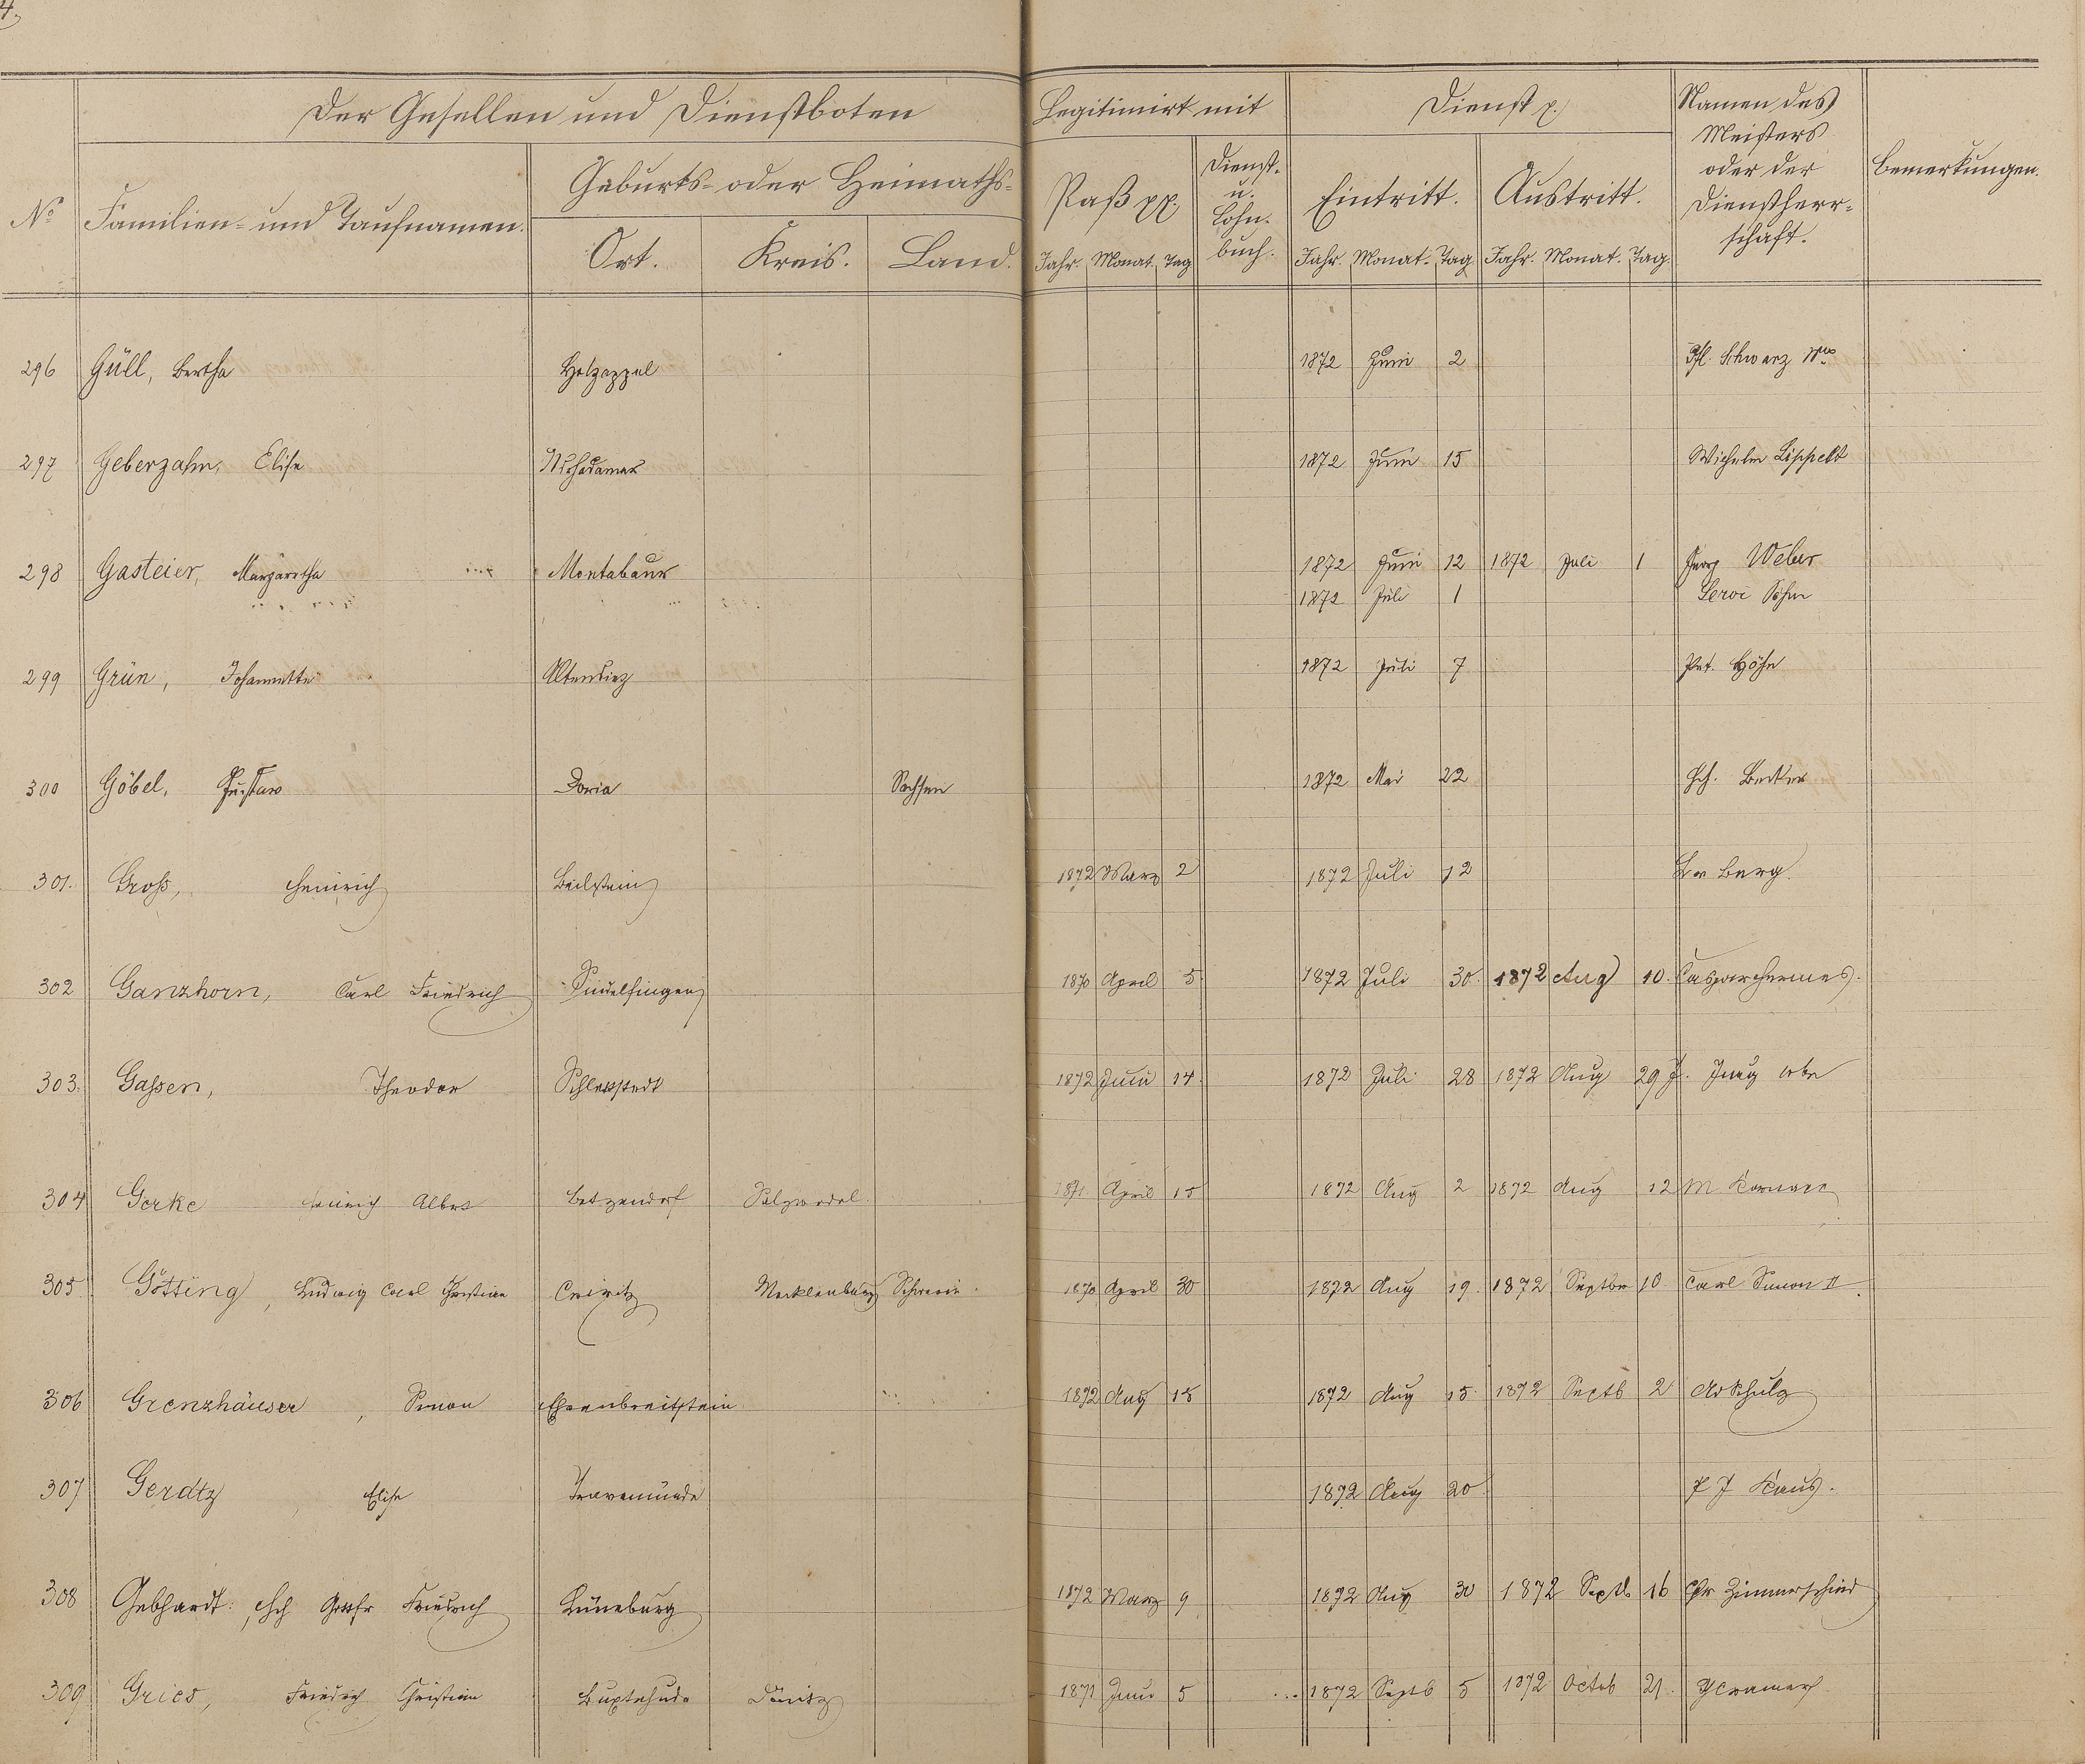 4.
Der Gesellen und Dienstboten
Legitimirt mit
Dienst p.
Namen des Meisters oder der Dienstherr-schaft.
Bemerkungen.
No
Familien- und Taufnamen.
Geburts- oder Heimaths-
Ort. Kreis. Land.
Paß pp.
Dienst- u. Lohn-buch.
Eintritt. Austritt.
Jahr. Monat. Tag Jahr. Monat. Tag Jahr. Monat. Tag.
296 Güll, Bertha Holzappel 1872 Juni 2 Schwarz
297 Geberzahn, Elise 1872 Juni 15 Wilhelm Lippelt
298 Gasteier, Margaretha Montabaur 1872 Juni 12 1872 Juli 1 Georg Weber
1872 Juli 1 Leroi Söhne
299 Grün, Johannette Altendiez 1872 Juli 7 Pet. Höhn
300 Göbel, Gustav Doria Sachsen 1872 Mai 22 Hch. Becker
301. Groß, Heinrich Beilstein 1872 März 2 1872 Juli 12 Berg.
302 Ganzhorn, Carl Friedrich Sindelfingen 1870 April 5 1872 Juli 30. 1872 Aug 10. Caspar Hermes.
303. Gaßen, Theodor Schlettstedt 1872 Juni 14. 1872 Juli 28 1872 Aug 29 J. Jung
304 Gerke Heinrich Albert Betzendorf Salzwedel 1871 April 15 1872 Aug 2 1872 Aug 12 M
305 Götting, Ludwig Carl Christian Crivitz Mecklenburg Schwerin. 1870 April 30 1872 Aug 19. 1872 Septbr 10 Carl Simon II.
306 Grenzhäuser, Simon Ehrenbreitstein 1872 Aug 15 1872 Aug 15. 1872 Septb 2 Ad Schulz
307 Gerdtz, Elise Travemünde 1872 Aug 20 J J Kaus.
308 Gebhardt, Hch Friedrich Lüneburg 1872 März 9 1872 Aug 30 1872 Septb 16 Zimmerschied
309 Gries, Friedrich Christian Buxtehude 1871 Juni 5 1872 Septb 5 1872 Octob 21. Cramer